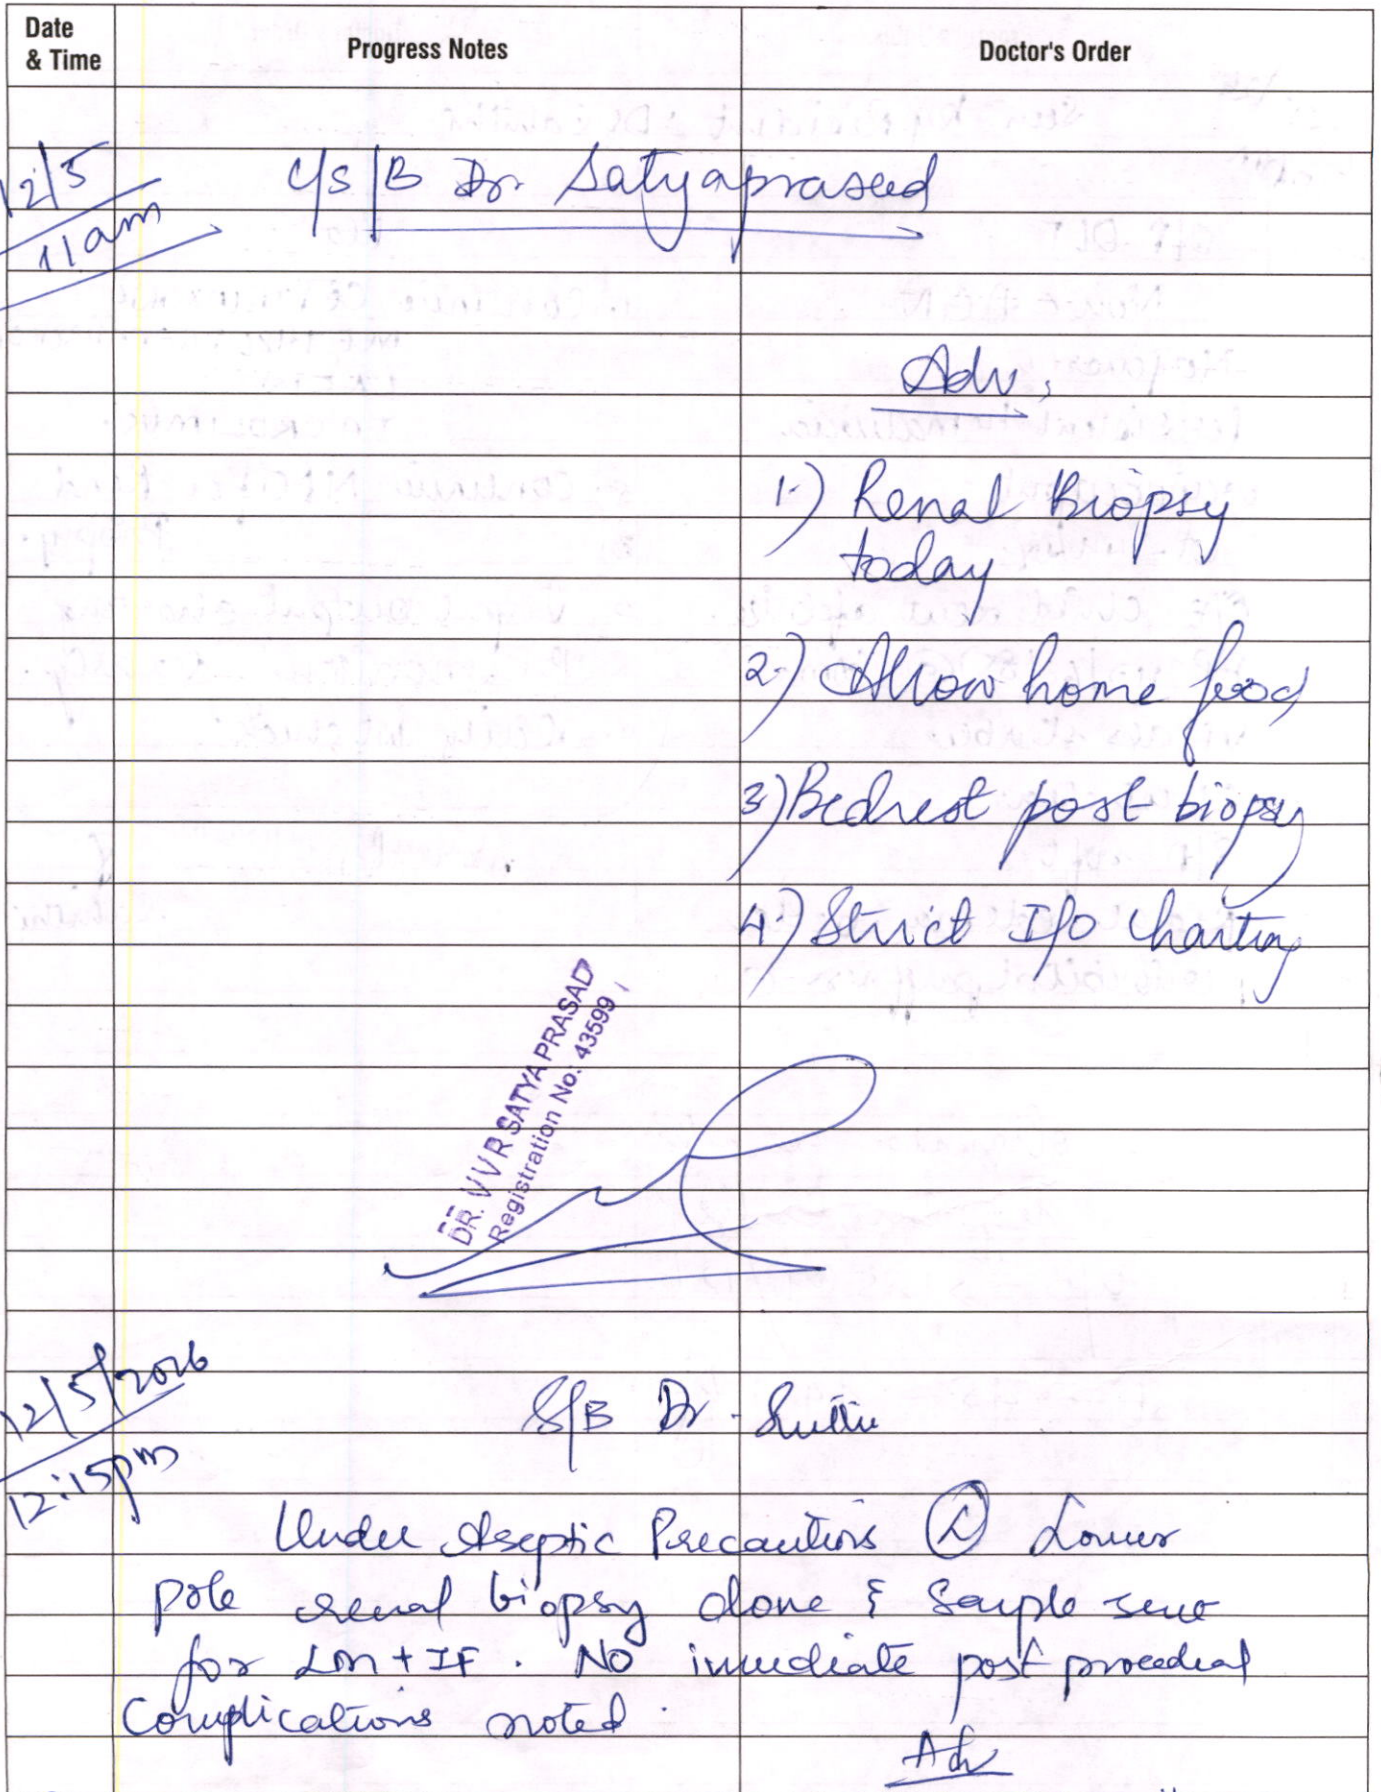 Date
& Time
Progress Notes
Doctor's Order
12/5
11am
C/S/B Dr. Satyaprasad
Adv,
1.) Renal Biopsy
today
2.) Allow home food
3.) Bedrest post biopsy
4.) Strict I/O Charting
DR. V V R SATYA PRASAD
Registration No: 43599
12/5/2026
12:15pm
S/B Dr.
Under Aseptic Precautions (L) Lower
pole renal biopsy done & Sample sent
for LM + IF. NO immediate post procedural
Complications noted.
Adv